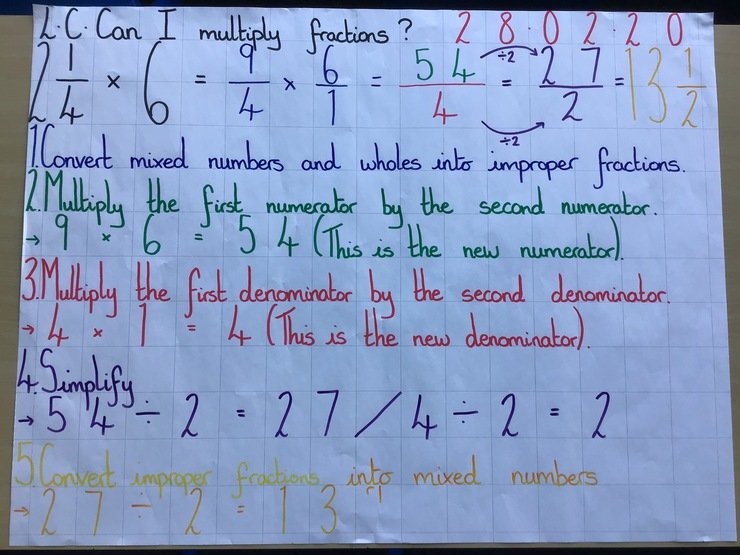 L.C. Can I multiply fractions? 28.02.20
2 1/4 × 6 = 9/4 × 6/1 = 54/4 ÷2 ÷2 = 27/2 = 13 1/2
1. Convert mixed numbers and wholes into improper fractions.
2. Multiply the first numerator by the second numerator.
→ 9 × 6 = 54 (This is the new numerator).
3. Multiply the first denominator by the second denominator.
→ 4 × 1 = 4 (This is the new denominator).
4. Simplify
→ 54 ÷ 2 = 27 / 4 ÷ 2 = 2
5. Convert improper fractions into mixed numbers
→ 27 ÷ 2 = 13 r1